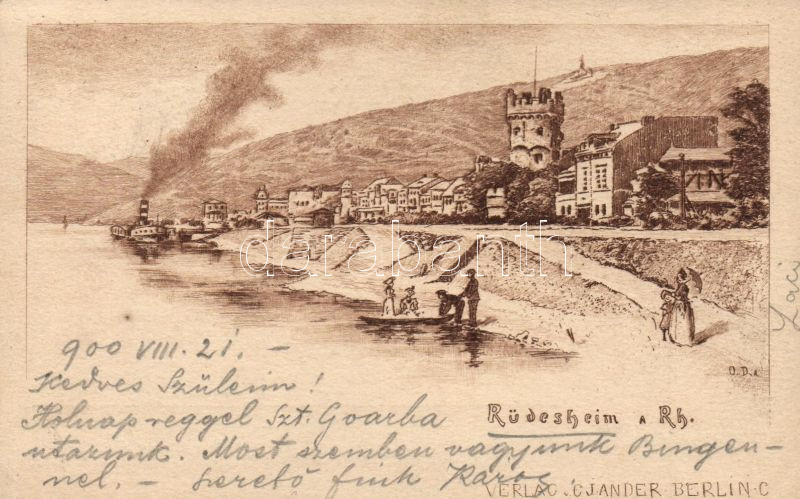 darabanth
O.D.
900 VIII. 21. –
Kedves Szüleim!
Holnap reggel Szt. Goarba
utazunk. Most szemben vagyunk Bingen-
nel. – szerető fiuk Károly
Rüdesheim A Rh.
VERLAG . C JANDER BERLIN . C